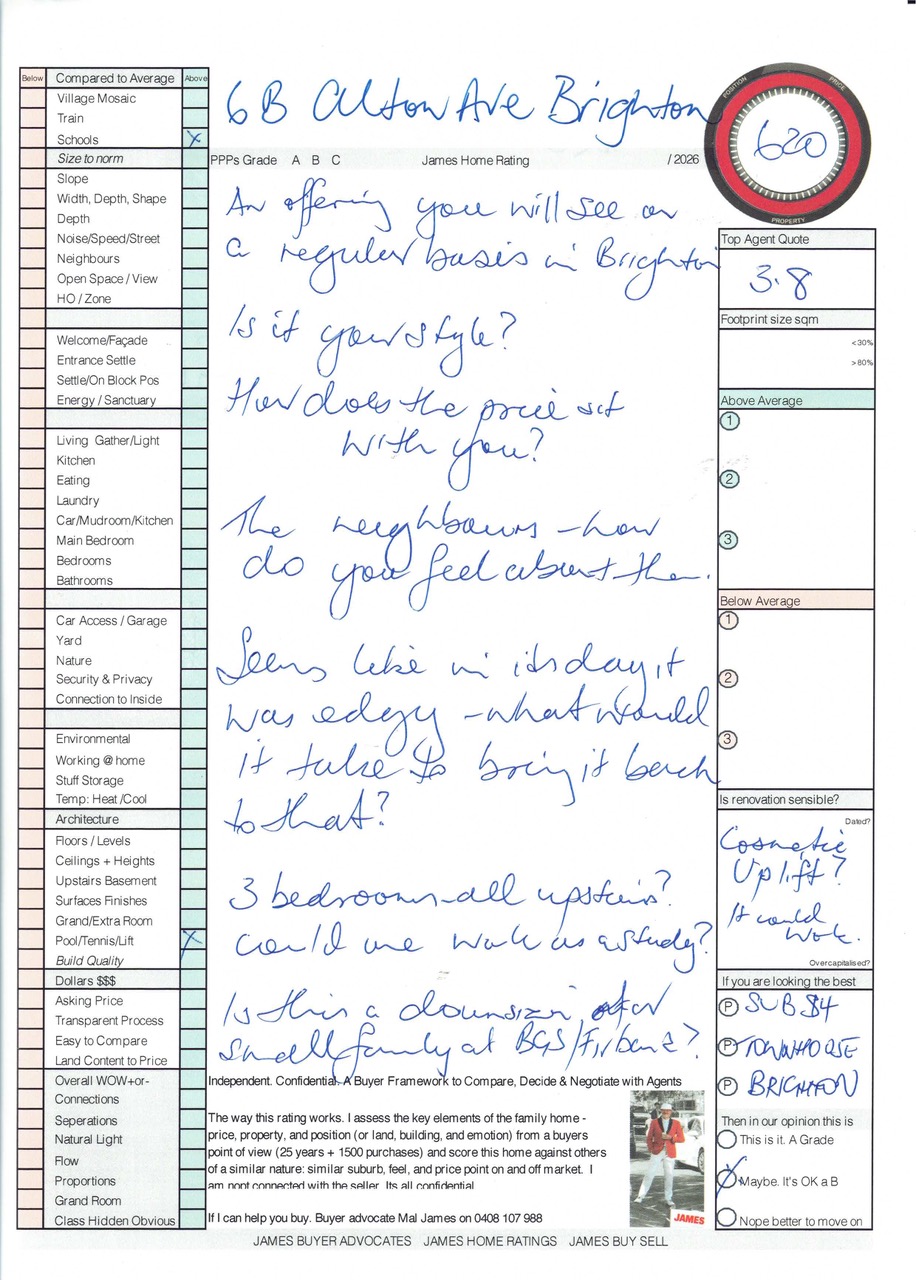 Below Compared to Average Above
Village Mosaic
Train
Schools X
Size to norm
Slope
Width, Depth, Shape
Depth
Noise/Speed/Street
Neighbours
Open Space / View
HO / Zone
Welcome/Façade
Entrance Settle
Settle/On Block Pos
Energy / Sanctuary
Living Gather/Light
Kitchen
Eating
Laundry
Car/Mudroom/Kitchen
Main Bedroom
Bedrooms
Bathrooms
Car Access / Garage
Yard
Nature
Security & Privacy
Connection to Inside
Environmental
Working @ home
Stuff Storage
Temp: Heat /Cool
Architecture
Floors / Levels
Ceilings + Heights
Upstairs Basement
Surfaces Finishes
Grand/Extra Room
Pool/Tennis/Lift X
Build Quality
Dollars $$$
Asking Price
Transparent Process
Easy to Compare
Land Content to Price
Overall WOW+or-
Connections
Seperations
Natural Light
Flow
Proportions
Grand Room
Class Hidden Obvious
6B Alton Ave Brighton
PPPs Grade A B C James Home Rating / 2026
An offering you will see on
a regular basis in Brighton
Is it your style?
How does the price sit
with you?
The neighbours - how
do you feel about them.
Seems like in its day it
was edgy - what would
it take to bring it back
to that?
3 bedrooms - all upstairs?
Could one work as a study?
Is this a downsizer or
small family at BGS/Firbank?
Independent. Confidential. A Buyer Framework to Compare, Decide & Negotiate with Agents
The way this rating works. I assess the key elements of the family home -
price, property, and position (or land, building, and emotion) from a buyers
point of view (25 years + 1500 purchases) and score this home against others
of a similar nature: similar suburb, feel, and price point on and off market. I
am nont connected with the seller. Its all confidential
If I can help you buy. Buyer advocate Mal James on 0408 107 988
JAMES
POSITION
PRICE
620
PROPERTY
Top Agent Quote
3.8
Footprint size sqm
<30%
>80%
Above Average
1
2
3
Below Average
1
2
3
Is renovation sensible?
Dated?
Cosmetic
Uplift?
It could
work.
Overcapitalised?
If you are looking the best
P SUB $4
P TOWNHOUSE
P BRIGHTON
Then in our opinion this is
This is it. A Grade
Maybe. It's OK a B
Nope better to move on
JAMES BUYER ADVOCATES JAMES HOME RATINGS JAMES BUY SELL